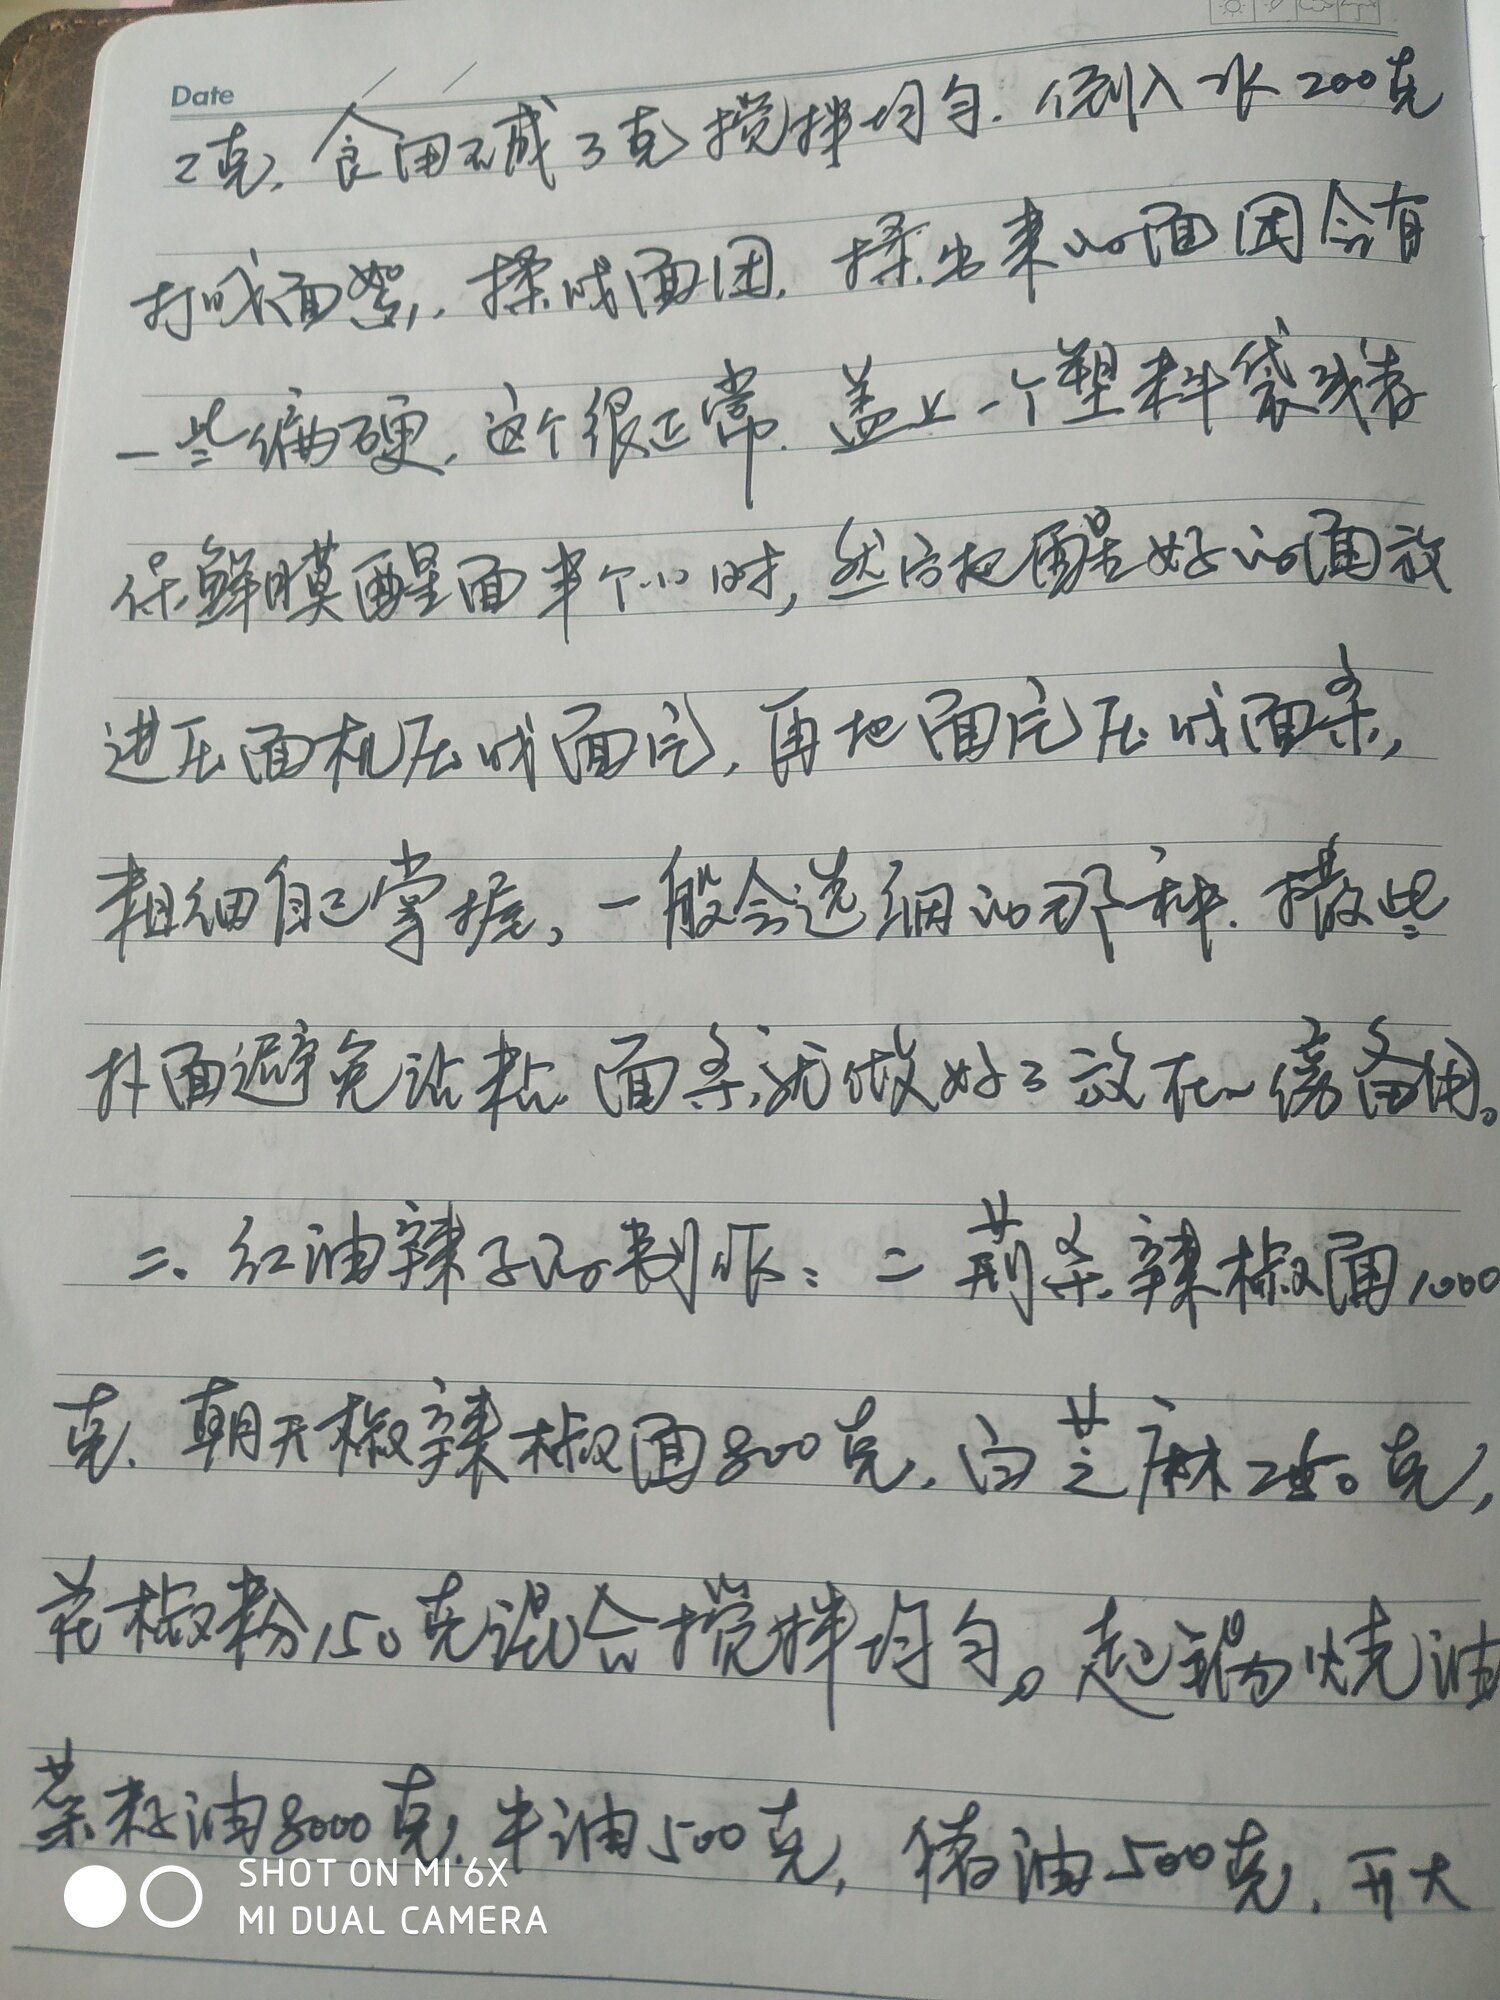 Date
2克,食用碱3克搅拌均匀.倒入水200克
打成面絮,.揉成面团.揉出来的面团会有
一些偏硬.这个很正常.盖上一个塑料袋或者
保鲜膜醒面半个小时,然后把醒好的面放
进压面机压成面片,再把面片压成面条,
粗细自己掌握,一般会选细的那种.撒些
扑面避免沾粘.面条就做好了放在一傍备用。
二、红油辣子的制作:二荆条辣椒面1000
克.朝天椒辣椒面800克,白芝麻250克,
花椒粉150克混合搅拌均匀。起锅烧油
菜籽油8000克,牛油500克,猪油500克,开大
SHOT ON MI 6X
MI DUAL CAMERA